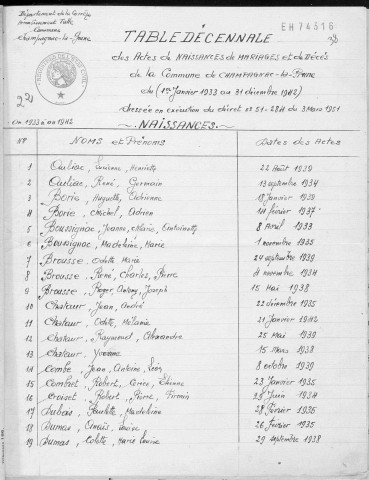 Département de la Corrèze
Arrondissement Tulle
Commune
Champagnac-la-Prune
EH74316
TABLE DÉCENNALE
des Actes de NAISSANCES de MARIAGES et de Décès
de la Commune de CHAMPAGNAC-la-Prune
du (1er Janvier 1933 au 31 décembre 1942)
Dressée en exécution du décret n° 51-284 du 3 Mars 1951
221
An 1933 à au 1942
NAISSANCES
N° NOMS et Prénoms Dates des Actes
1 Henriette 22 Août 1939
2 René Germain 13 septembre 1934
3 Borie, Huguette 18 Janvier 1939
4 Borie, Michel, Adrien février 1937
5 Boussignac, Jeanne, Marie, Antoinette 8 Avril 1933
6 Boussignac, Madeleine, Marie 1 novembre 1935
7 Brousse, Odette Marie 24 septembre 1939
8 Brousse, René, Charles, Pierre 4 novembre 1934
9 Brousse, Roger, Antony, Joseph 15 Mai 1938
10 Chateur, Jean, André 22 décembre 1935
11 Chateur, Odette, Mélanie 21 Janvier 1942
12 Chateur, Raymond, Alexandre 25 Mai 1939
13 Chateur, Yvonne 15 Mars 1938
14 Combe, Jean, Antoine, Léon 8 octobre 1939
15 Combret, Robert, Etienne 23 Janvier 1935
16 Croiset, Robert, Pierre, Firmin Juin 1934
17 Dubois, Paulette, Madeleine 28 Février 1935
18 Dumas, Anaïs, Louise 26 Février 1935
19 Dumas, Colette, Marie Louise 29 septembre 1938